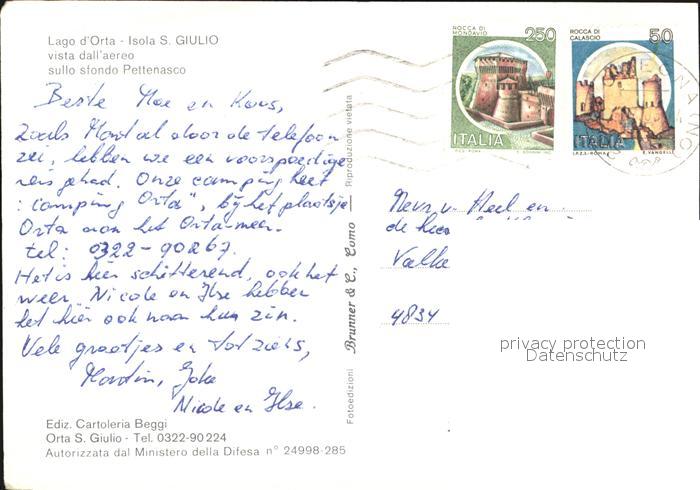 Lago d'Orta - Isola S. GIULIO
vista dall'aereo
sullo sfondo Pettenasco
Beste Moe en Koos,
Zoals Mart al door de telefoon
zei, hebben we een voorspoedige
reis gehad. Onze camping heet
: camping Orta", bij het plaatsje
Orta aan het Orta-meer.
tel: 0322-90267.
Het is hier schitterend, ook het
weer. Nicole en Ilse hebben
het hier ook naar hun zin.
Vele groetjes en tot ziens,
Joke
Nicole en Ilse.
Ediz. Cartoleria Beggi
Orta S. Giulio - Tel. 0322-90224
Autorizzata dal Ministero della Difesa n° 24998-285
Fotoedizioni Brunner & C., Como — Riproduzione vietata
ROCCA DI
MONDAVIO
250
ITALIA
ROCCA DI
CALASCIO
50
ITALIA
I.P.Z.S.-ROMA E. VANGELLI
Heel en
de heer
4834
privacy protection
Datenschutz